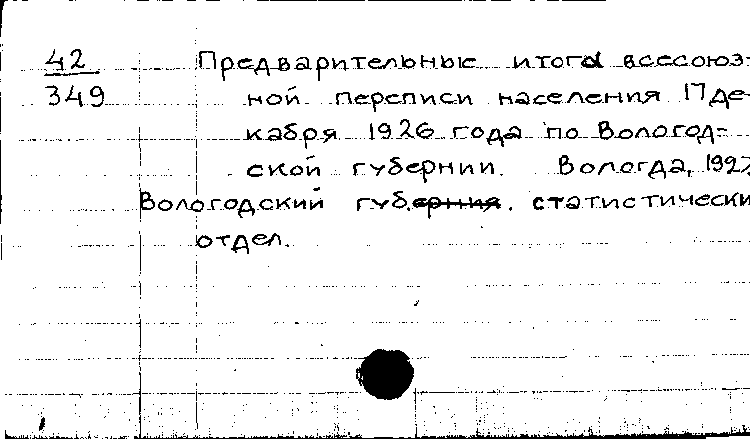 42
349
Предварительные итоги всесоюз-
ной переписи населения 17 де-
кабря 1926 года по Вологод-
ской губернии. Вологда, 1927
Вологодский губ.ерния. статистически
отдел.